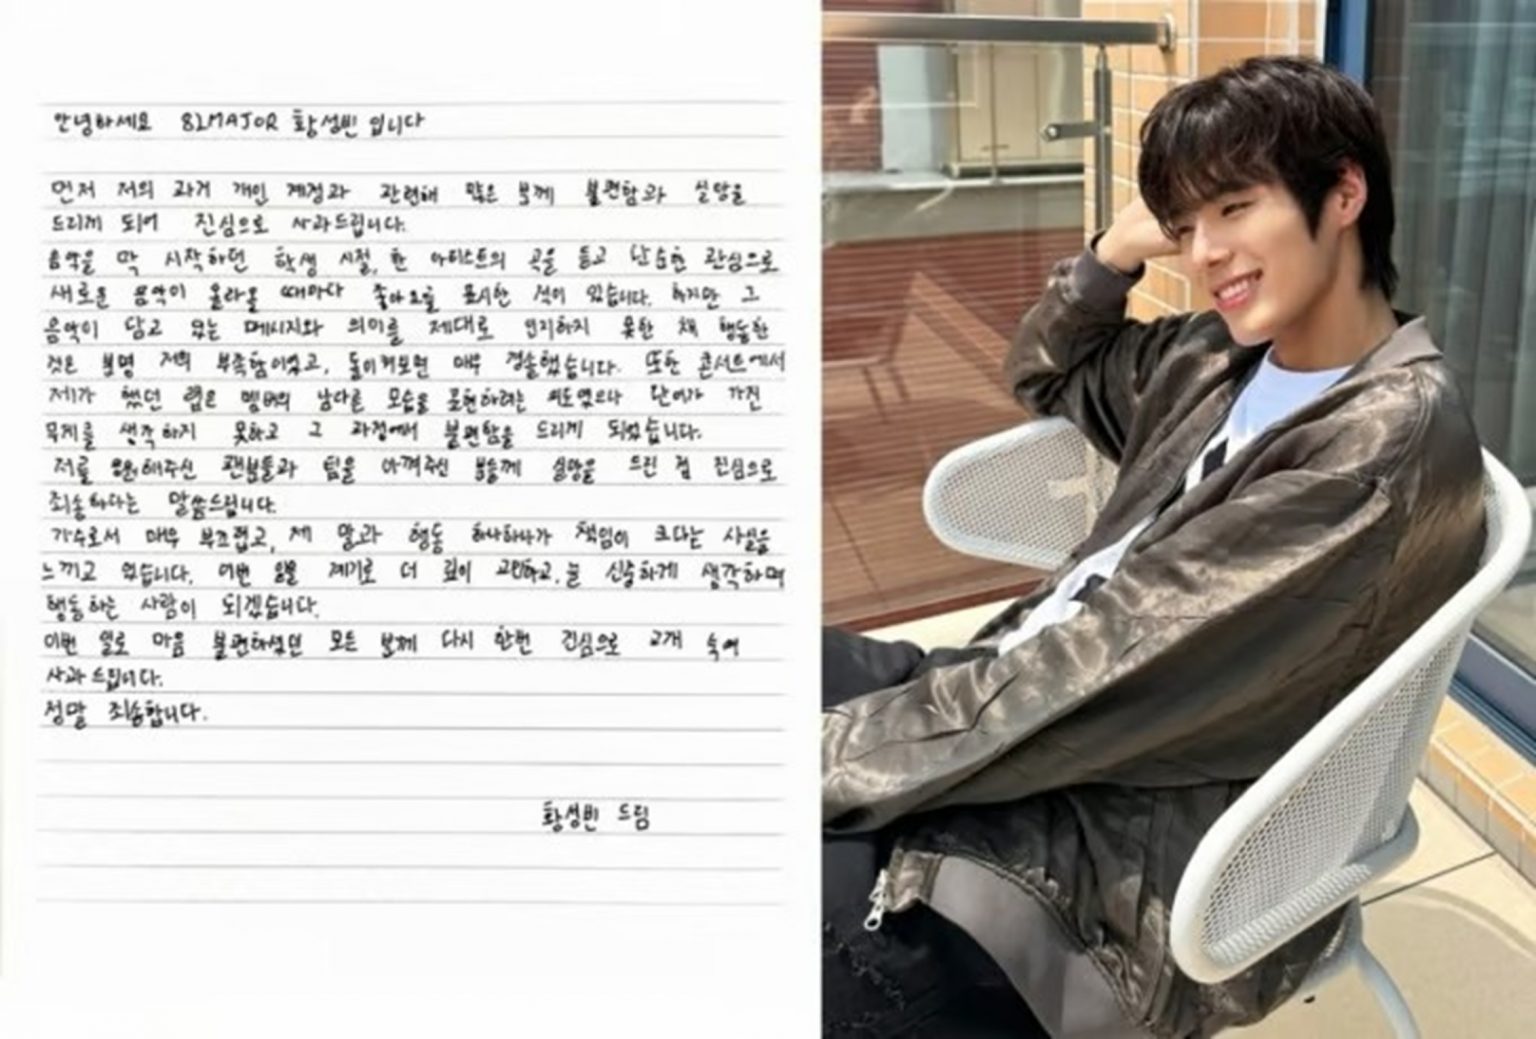 안녕하세요 82MAJOR 황성빈 입니다
먼저 저의 과거 개인 계정과 관련해 많은 분께 불편함과 실망을
드리게 되어 진심으로 사과드립니다.
음악을 막 시작하던 학생 시절, 한 아티스트의 곡을 듣고 단순한 관심으로
새로운 음악이 올라올 때마다 좋아요를 표시한 적이 있습니다. 하지만 그
음악이 담고 있는 메시지와 의미를 제대로 인지하지 못한 채 행동한
것은 분명 저의 부족함이었고, 돌이켜보면 매우 경솔했습니다. 또한 콘서트에서
제가 했던 랩은 멤버의 남다른 모습을 표현하려는 의도였으나 단어가 가진
무게를 생각하지 못하고 그 과정에서 불편함을 드리게 되었습니다.
저를 응원해주신 팬분들과 팀을 아껴주신 분들께 실망을 드린 점 진심으로
죄송하다는 말씀드립니다.
가수로서 매우 부끄럽고, 제 말과 행동 하나하나가 책임이 크다는 사실을
느끼고 있습니다. 이번 일을 계기로 더 깊이 고민하고, 늘 신중하게 생각하며
행동하는 사람이 되겠습니다.
이번 일로 마음 불편하셨던 모든 분께 다시 한번 진심으로 고개 숙여
사과드립니다.
정말 죄송합니다.
황성빈 드림